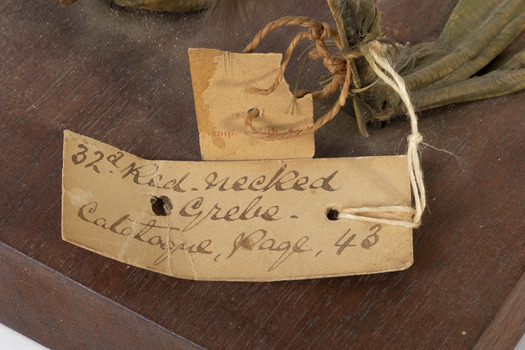 32a. Red-necked
Grebe.
Catologue, Page, 43